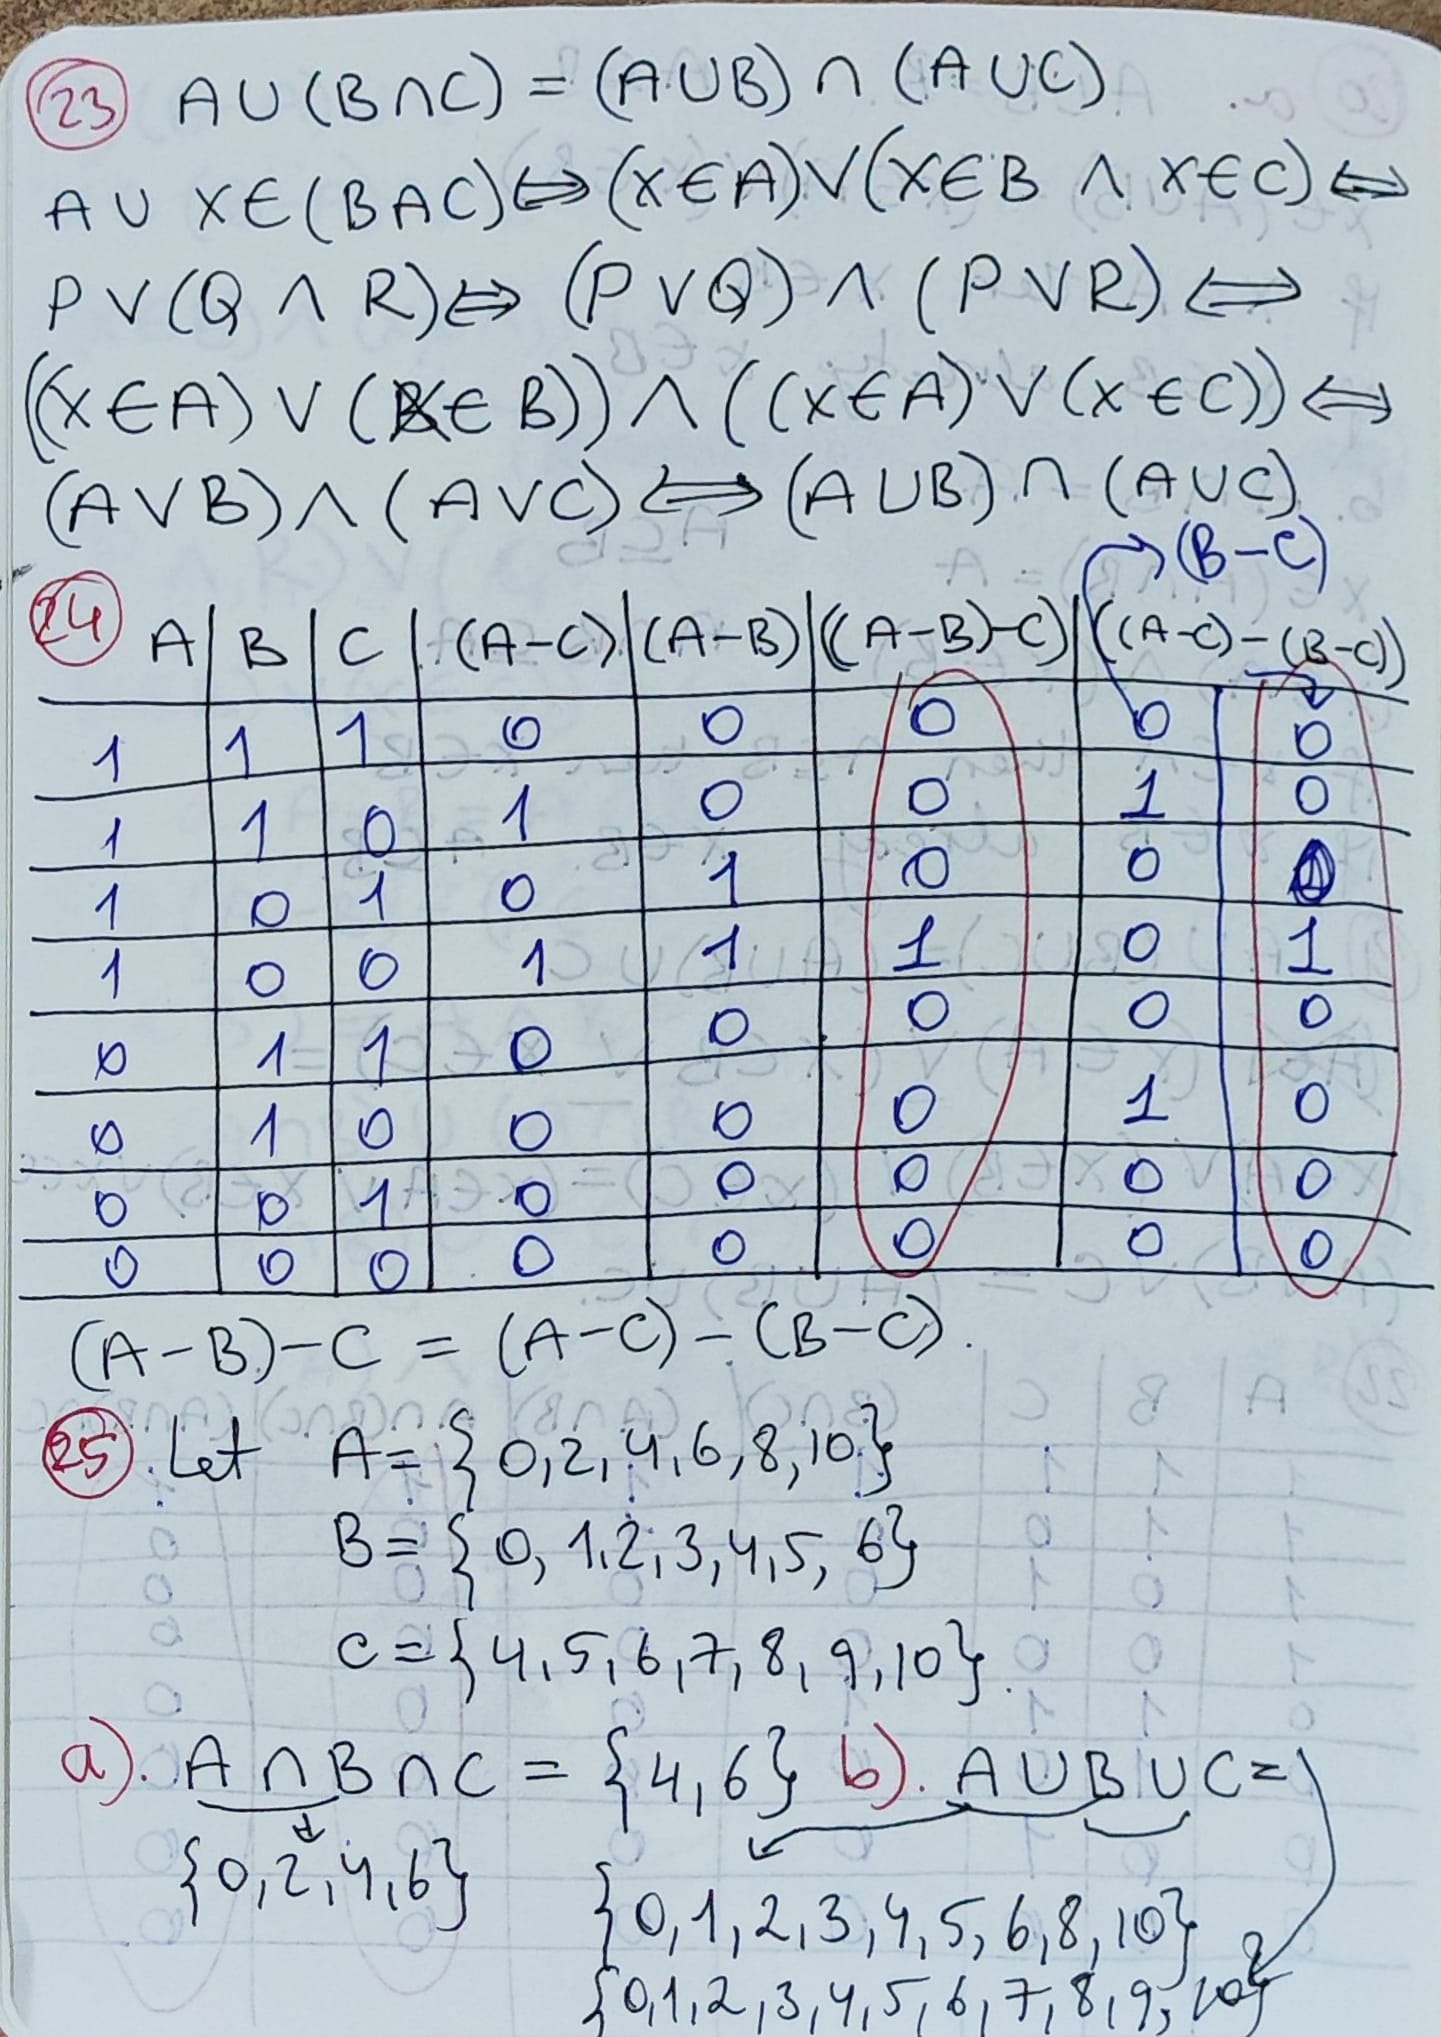 23 A∪(B∩C) = (A∪B) ∩ (A∪C)
A∪ X∈(B∧C)⇔(X∈A)∨(X∈B ∧ X∈C)⇔
P∨(Q ∧ R)⇔ (P∨Q) ∧ (P∨R)⇔
((X∈A) ∨ (X∈B)) ∧ ((X∈A) ∨ (X∈C))⇔
(A∨B)∧(A∨C)⇔(A∪B)∩(A∪C)
(B-C)
24 A | B | C | (A-C) | (A-B) | ((A-B)-C) | ((A-C)-(B-C))
1 | 1 | 1 | 0 | 0 | 0 | 0 | 0
1 | 1 | 0 | 1 | 0 | 0 | 1 | 0
1 | 0 | 1 | 0 | 1 | 0 | 0 | 0
1 | 0 | 0 | 1 | 1 | 1 | 0 | 1
0 | 1 | 1 | 0 | 0 | 0 | 0 | 0
0 | 1 | 0 | 0 | 0 | 0 | 1 | 0
0 | 0 | 1 | 0 | 0 | 0 | 0 | 0
0 | 0 | 0 | 0 | 0 | 0 | 0 | 0
(A-B)-C = (A-C)-(B-C).
25 Let A={0,2,4,6,8,10}
B={0,1,2,3,4,5,6}
C={4,5,6,7,8,9,10}.
a). A∩B∩C = {4,6} b). A∪B∪C=
{0,2,4,6}
{0,1,2,3,4,5,6,8,10}
{0,1,2,3,4,5,6,7,8,9,10}